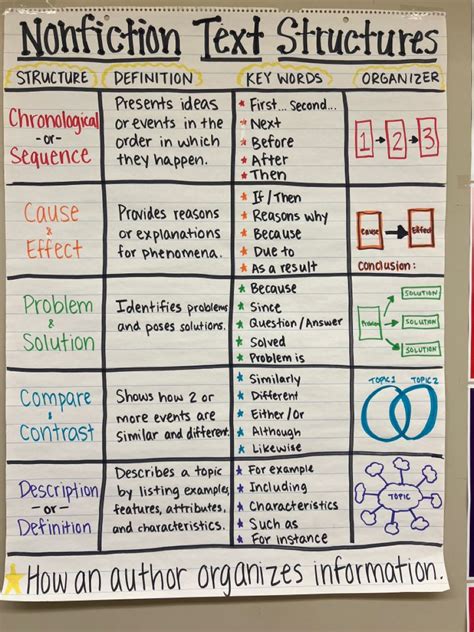 Nonfiction Text Structures
STRUCTURE
DEFINITION
KEY WORDS
ORGANIZER
Chronological
-or-
Sequence
Presents ideas
or events in the
order in which
they happen.
★ First... Second...
★ Next
★ Before
★ After
★ Then
1 2 3
Cause
&
Effect
Provides reasons
or explanations
for phenomena.
★ If/Then
★ Reasons why
★ Because
★ Due to
★ As a result
Cause
Effect
Conclusion:
Problem
&
Solution
Identifies problems
and poses solutions.
★ Because
★ Since
★ Question/Answer
★ Solved
★ Problem is
Problem
SOLUTION
SOLUTION
SOLUTION
Compare
&
Contrast
Shows how 2 or
more events are
similar and different.
★ Similarly
★ Different
★ Either/or
★ Although
★ Likewise
TOPIC 1
TOPIC 2
Description
-or-
Definition
Describes a topic
by listing examples,
features, attributes,
and characteristics.
★ For example
★ Including
★ Characteristics
★ Such as
★ For instance
TOPIC
★ How an author organizes information.